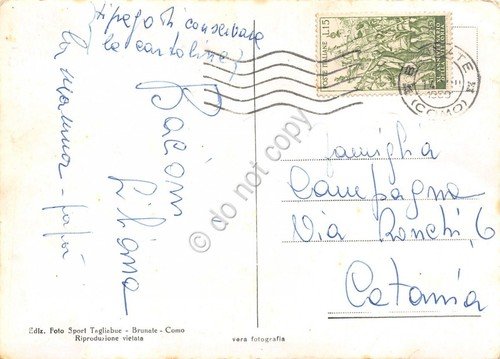 ti prego di conservare
la cartolina
Bacioni
Liliana
la mamma - papà
Ediz. Foto Sport Tagliabue - Brunate - Como
Riproduzione vietata
vera fotografia
L.15
POSTE ITALIANE
BRUNATE
(COMO)
famiglia
Campagna
Via Ronchi, 6
Catania
do not copy